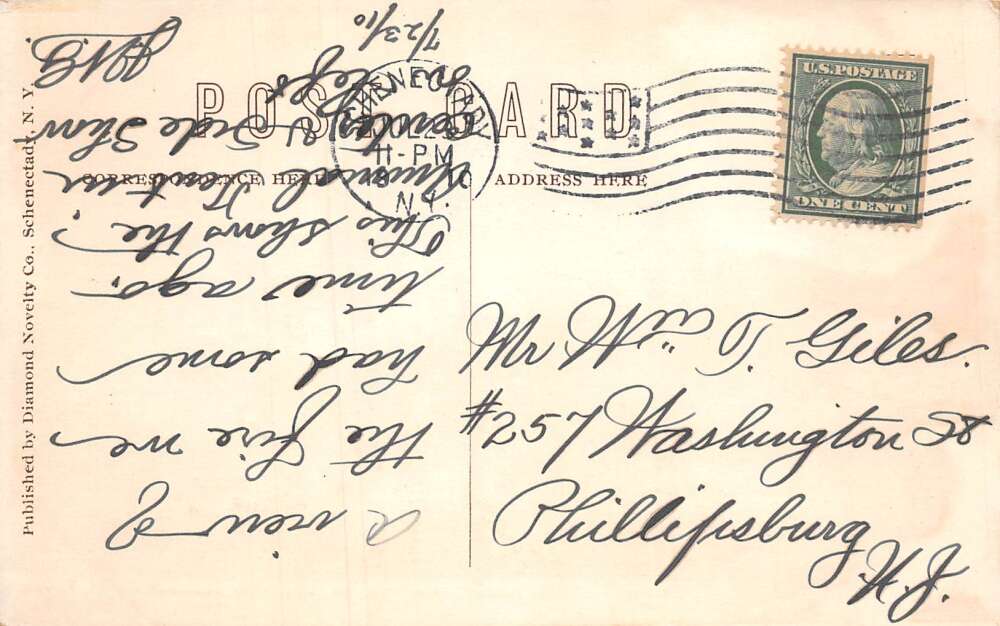 POST CARD
CORRESPONDENCE HERE
ADDRESS HERE
Published by Diamond Novelty Co., Schenectady, N. Y.
SCHENECTADY
11-PM
N.Y.
U.S. POSTAGE
ONE CENT
Mr Wm T. Giles.
#257 Washington St
Phillipsburg
N.J.
a view of
the fire we
had some
time ago.
This shows the
Side Show
7/23/10